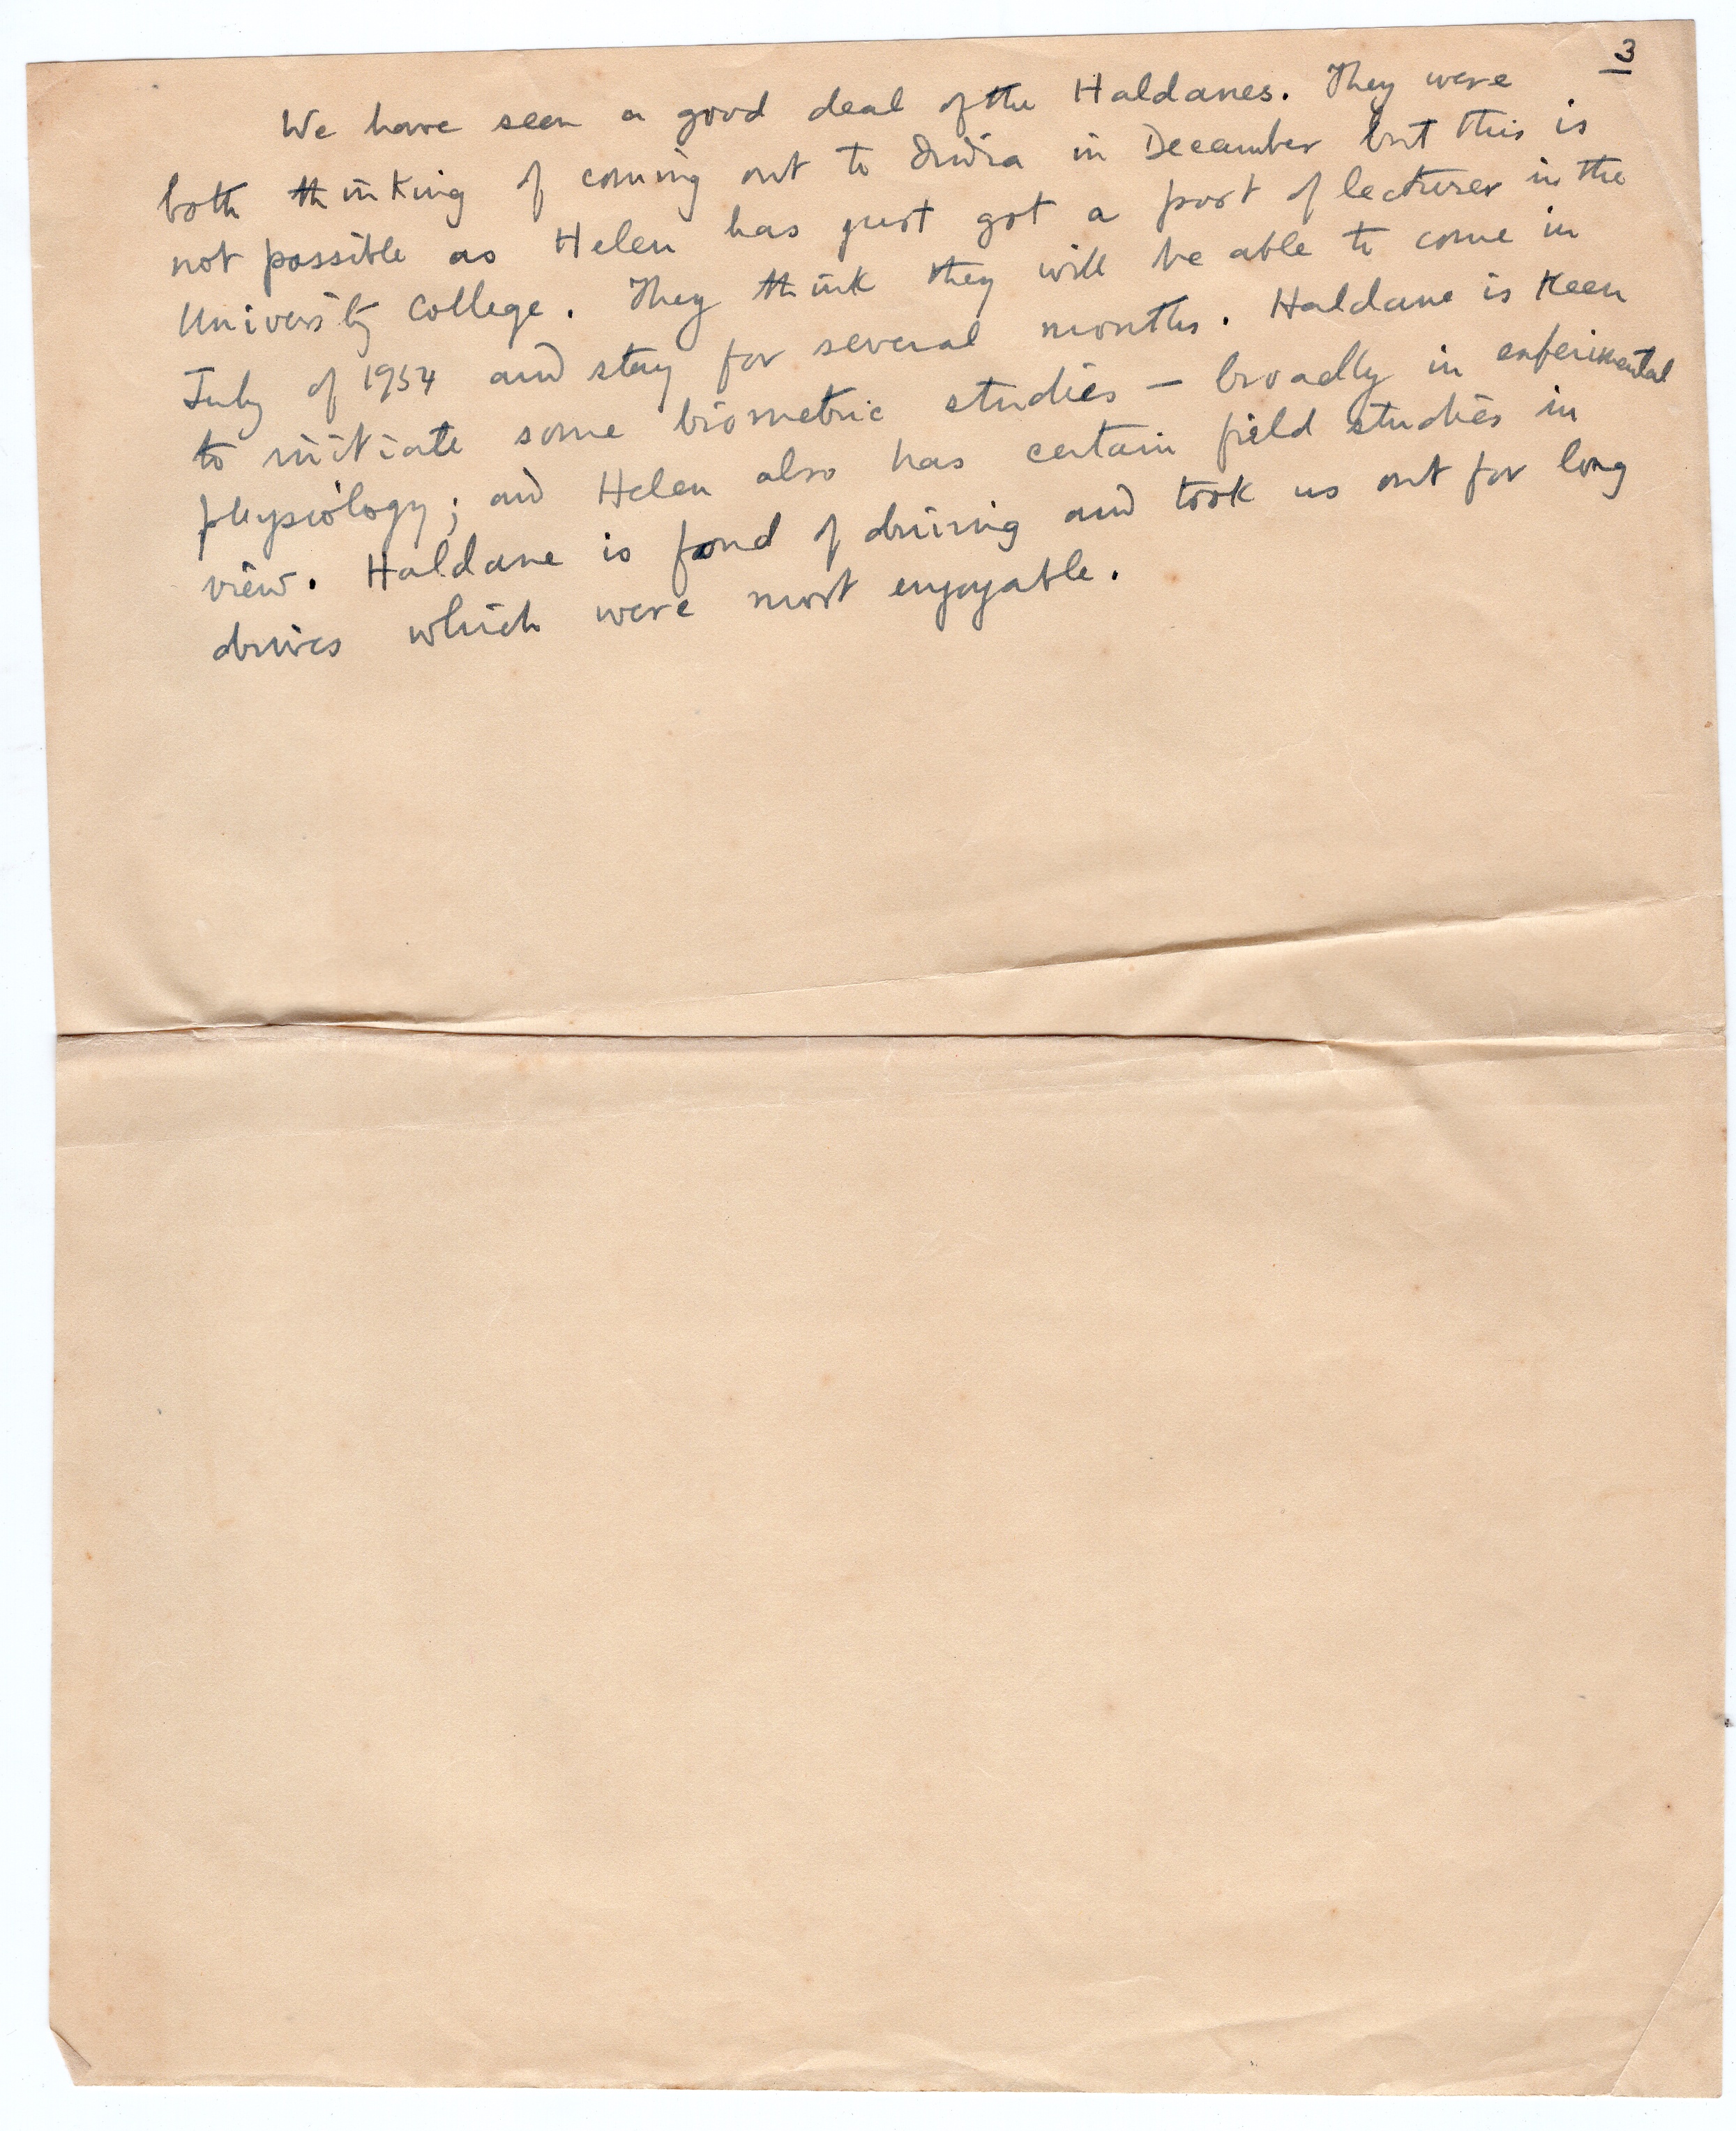 3
We have seen a good deal of the Haldanes. They were
both thinking of coming out to India in December but this is
not possible as Helen has just got a post of lecturer in the
University College. They think they will be able to come in
July of 1954 and stay for several months. Haldane is keen
to initiate some biometric studies — broadly in experimental
physiology; and Helen also has certain field studies in
view. Haldane is fond of driving and took us out for long
drives which were most enjoyable.